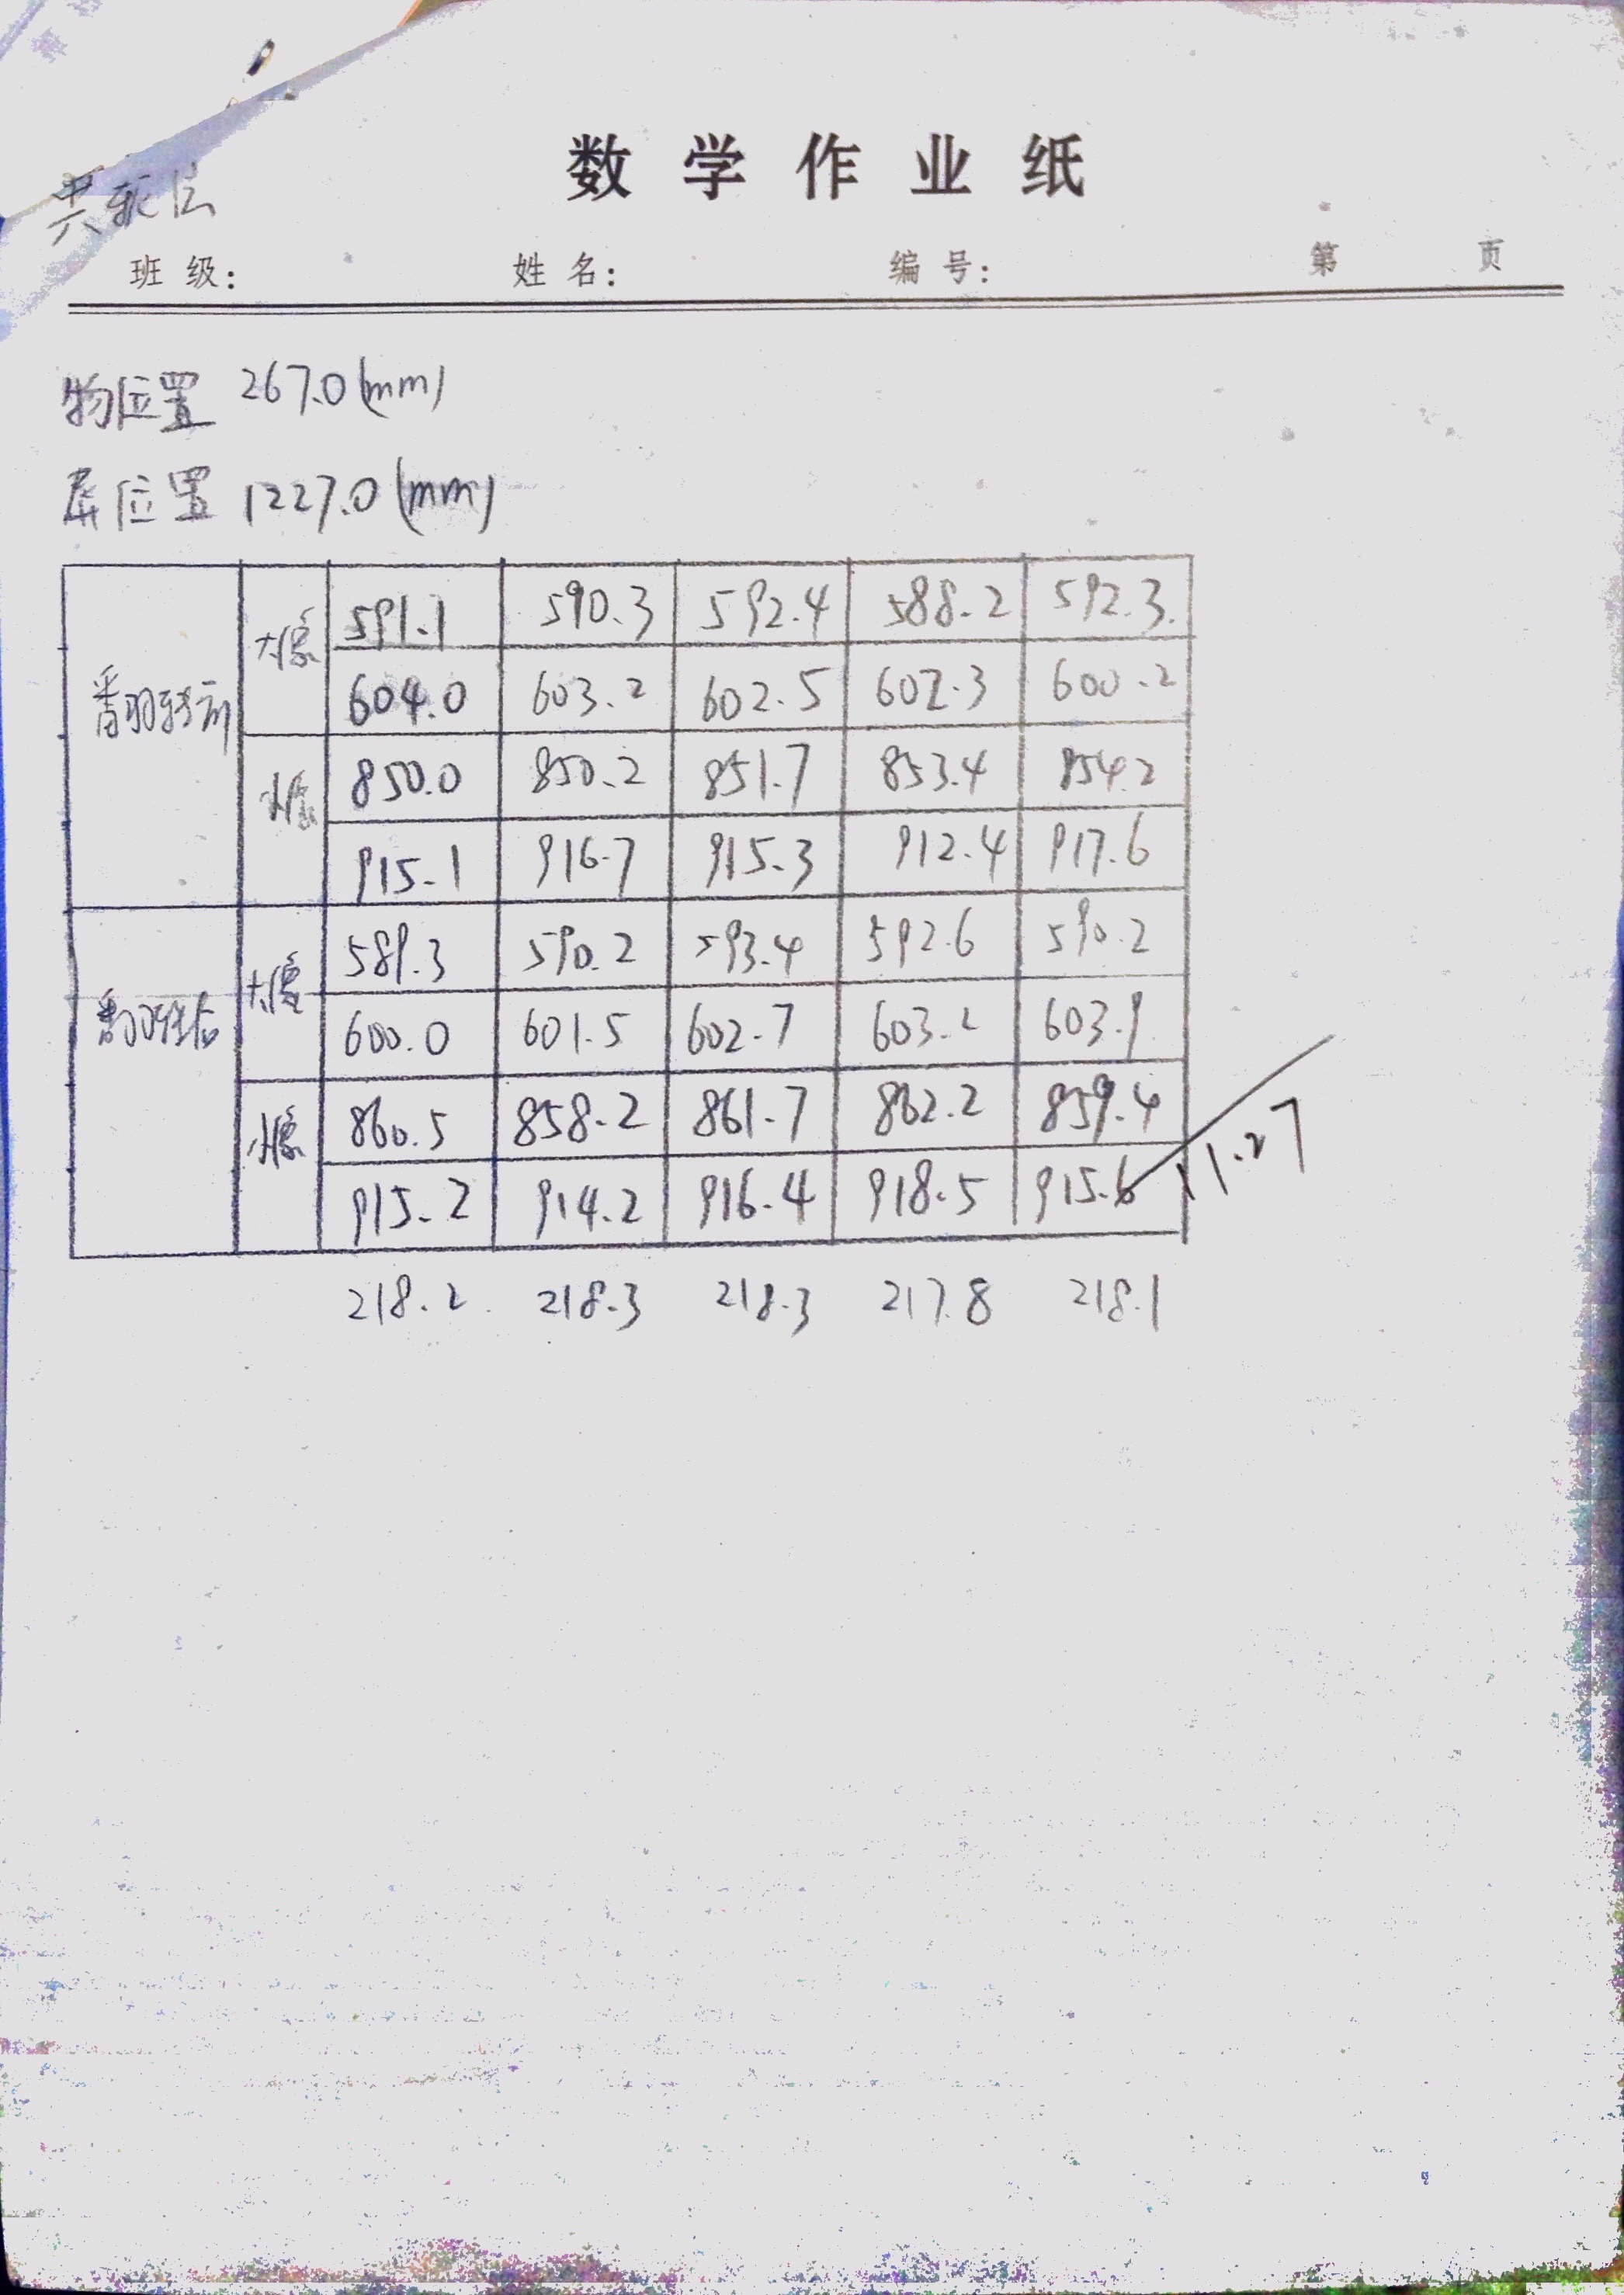 数学作业纸
共轭法
班级: 姓名: 编号: 第 页
物位置 267.0(mm)
屏位置 1227.0(mm)
翻转前 大像 591.1 590.3 592.4 588.2 592.3
604.0 603.2 602.5 602.3 600.2
小像 850.0 850.2 851.7 853.4 854.2
915.1 916.7 915.3 912.4 917.6
翻转后 大像 589.3 590.2 593.4 592.6 590.2
600.0 601.5 602.7 603.2 603.9
小像 860.5 858.2 861.7 862.2 859.4
915.2 914.2 916.4 918.5 915.6
11.27
218.2 218.3 218.3 217.8 218.1